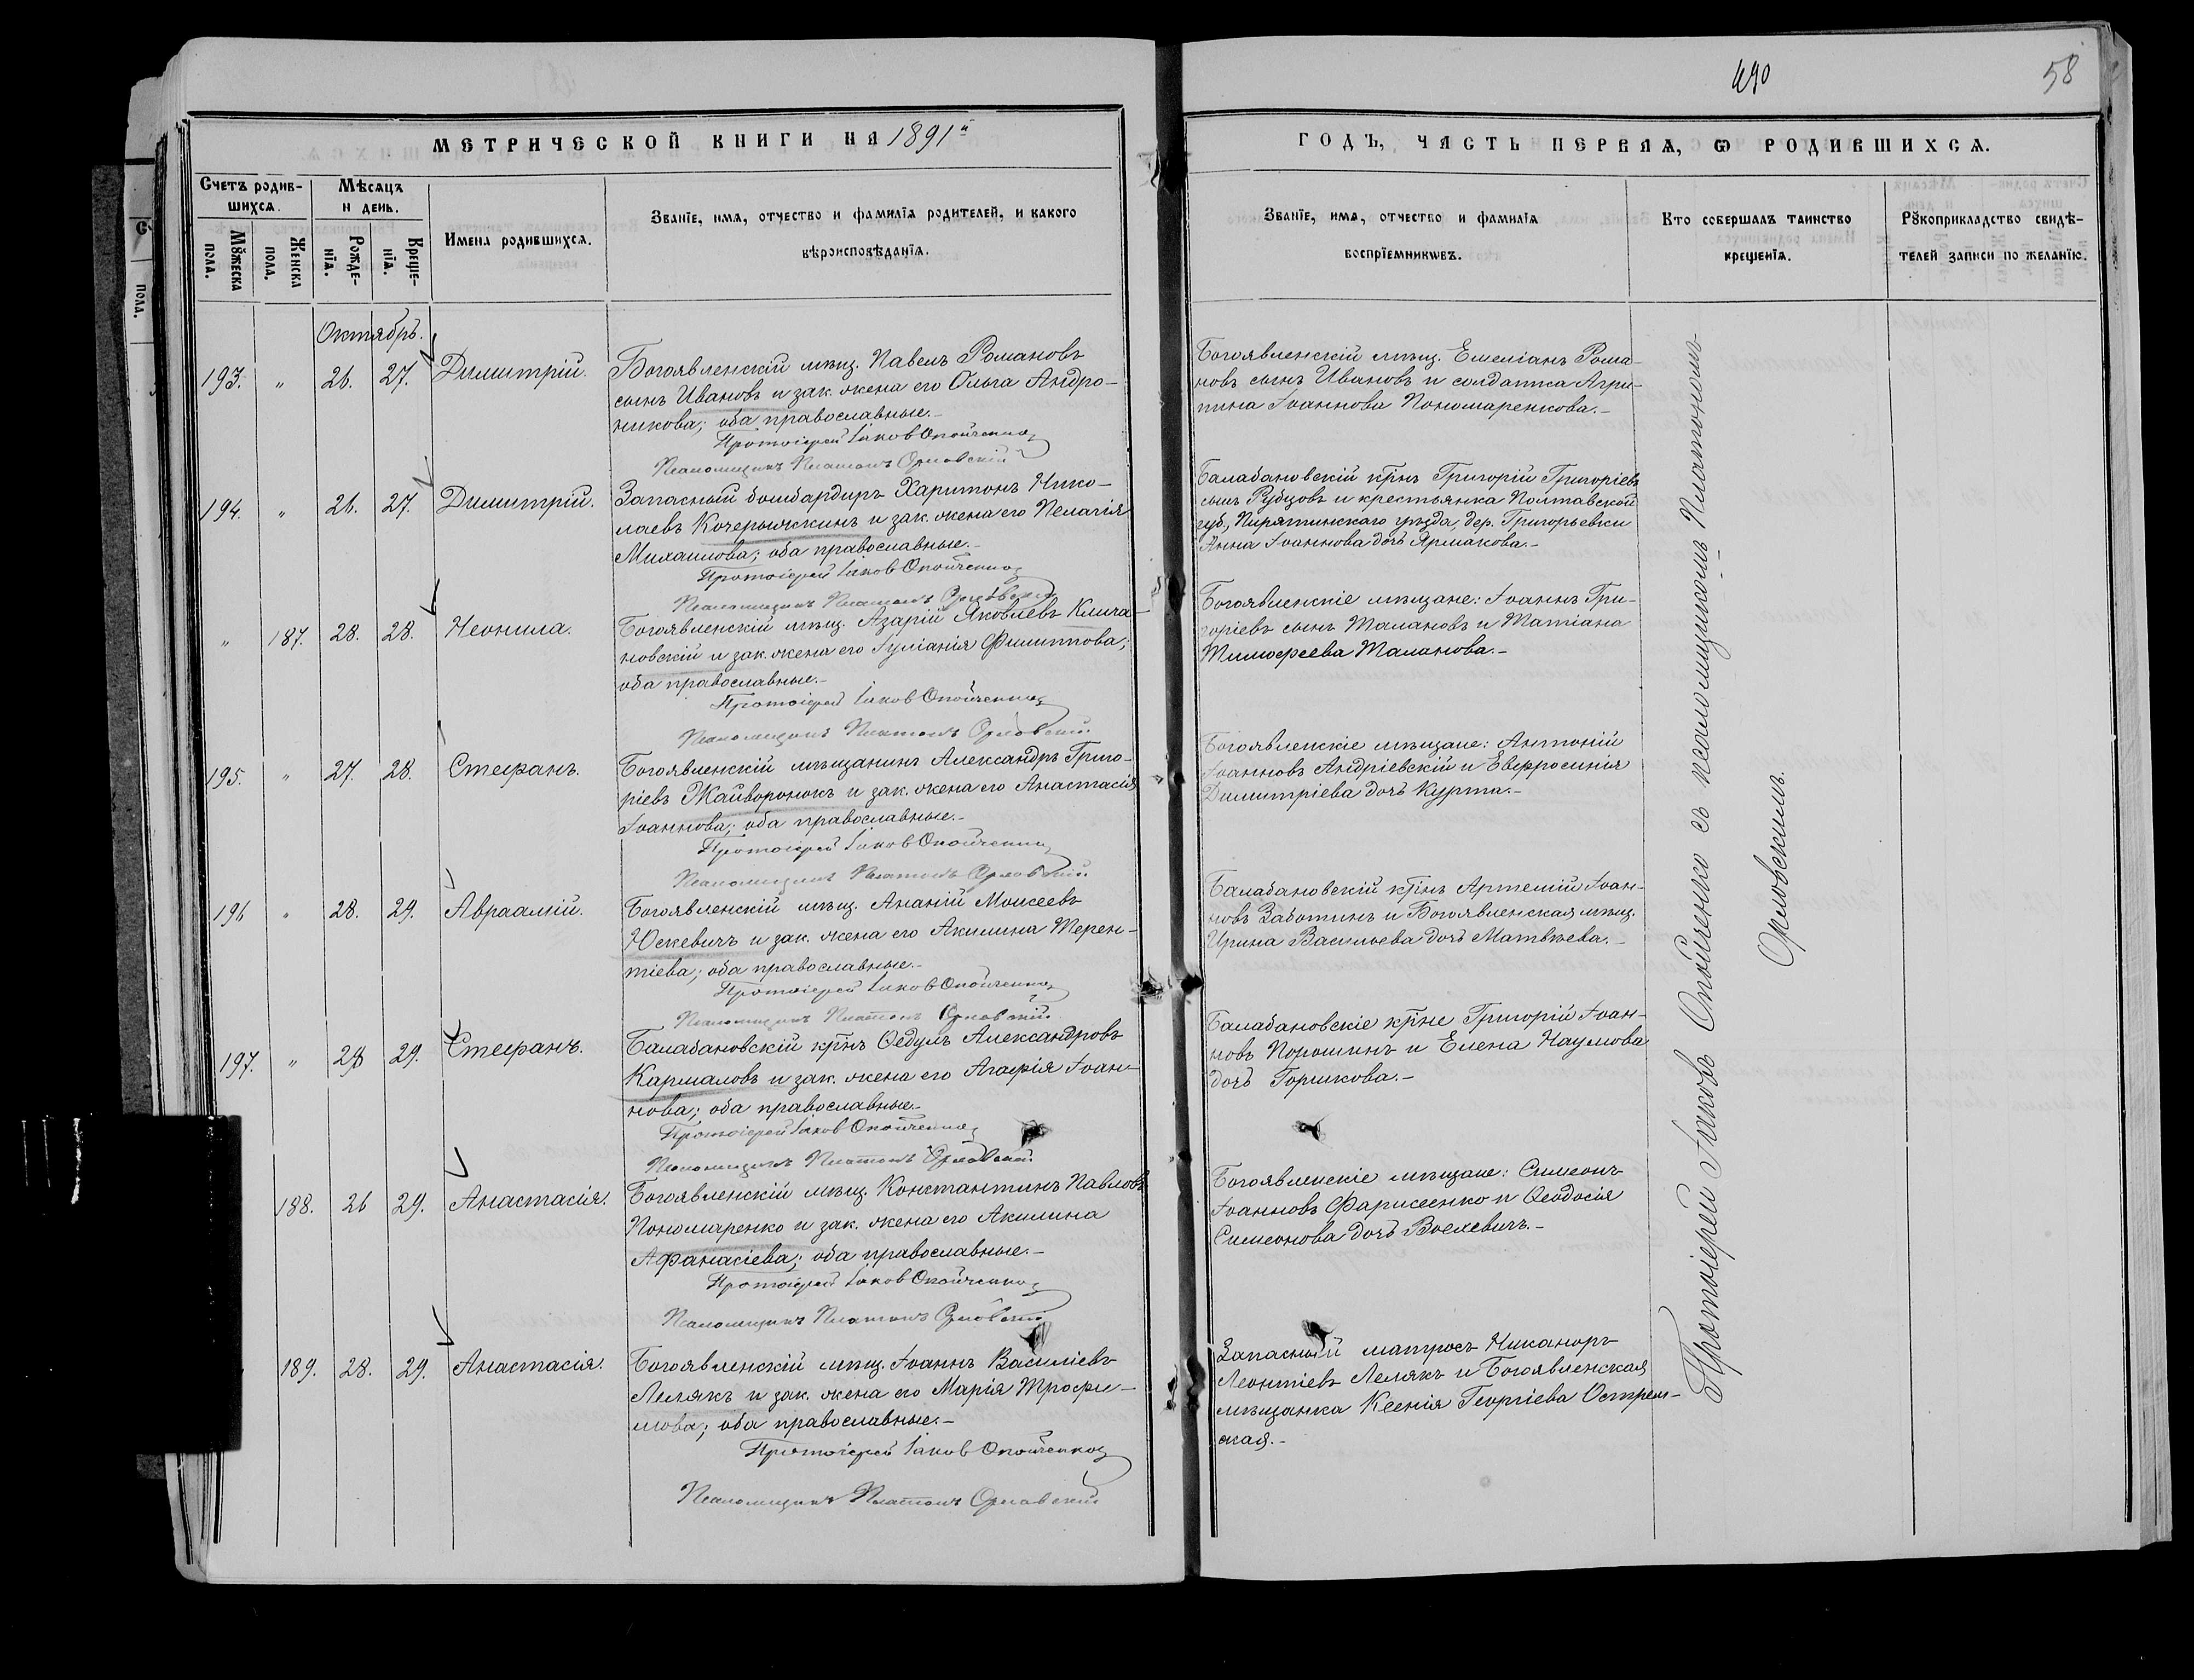 490
58
МЕТРИЧЕСКОЙ КНИГИ НА 1891й
ГОДЪ, ЧАСТЬ ПЕРВАЯ, Ѡ РОДИВШИХСѦ.
Счетъ родив-
шихсѧ.
Мѣсѧцъ
и день.
Мꙋжеска
пола.
Женска
пола.
Рожде-
нїѧ.
Креще-
нїѧ.
Имена родившихсѧ.
Званїе, имѧ, отчество и фамилїѧ родителей, и какого
вѣроисповѣданїѧ.
Званїе, имѧ, отчество и фамилїѧ
воспрїемникѡвъ.
Кто совершалъ таинство
крещенїѧ.
Рꙋкоприкладство свидѣ-
телей записи по желанїю.
Октябрь.
193. " 26. 27. Димитрій.
Богоявленскій мѣщ. Павелъ Романовъ
сынъ Ивановъ и зак. жена его Ольга Андро-
никова; оба православные.-
Протоіерей Іаковъ Опойченко
Псаломщикъ Платонъ Орловскій
Богоявленскій мѣщ. Емеліанъ Рома-
новъ сынъ Ивановъ и солдатка Агри-
пина Іоаннова Пономаренкова.-
194. " 26. 27. Димитрій.
Запасный бомбардиръ Харитонъ Нико-
лаевъ Кочерыжкинъ и зак. жена его Пелагія
Михаилова; оба православные.-
Протоіерей Іаковъ Опойченко
Псаломщикъ Платонъ Орловскій
Балабановскій крнъ Григорій Григоріевъ
сынъ Рубцовъ и крестьянка Полтавской
губ., Пирятинскаго уѣзда, дер. Григорьевки
Анна Іоаннова дочь Ярмакова.-
" 187. 28. 28. Неонила.
Богоявленскій мѣщ. Азарій Яковлевъ Клима-
новскій и зак. жена его Іуліанія Филиппова;
оба православные.-
Протоіерей Іаковъ Опойченко
Псаломщикъ Платонъ Орловскій
Богоявленскіе мѣщане: Іоаннъ Гри-
горіевъ сынъ Талановъ и Татіана
Тимоѳеева Таланова.-
195. " 27. 28. Стефанъ.
Богоявленскій мѣщанинъ Александръ Григо-
ріевъ Жайворонокъ и зак. жена его Анастасія
Іоаннова; оба православные.-
Протоіерей Іаковъ Опойченко
Псаломщикъ Платонъ Орловскій
Богоявленскіе мѣщане: Антоній
Іоанновъ Андріевскій и Евфросинія
Димитріева дочь Курта.-
196 " 28. 29. Авраамій.
Богоявленскій мѣщ. Ананій Моисеевъ
Юскевичъ и зак. жена его Акилина Терен-
тіева; оба православные.-
Протоіерей Іаковъ Опойченко
Псаломщикъ Платонъ Орловскій
Балабановскій крнъ Артемій Іоан-
новъ Заботинъ и Богоявленская мѣщ.
Ирина Васильева дочь Матвѣева.-
197. " 28 29. Стефанъ.
Балабановскій крнъ Ѳедулъ Александровъ
Кармаловъ и зак. жена его Агафія Іоан-
нова; оба православные.-
Протоіерей Іаковъ Опойченко
Псаломщикъ Платонъ Орловскій
Балабановскіе крне Григорій Іоан-
новъ Порошинъ и Елена Наумова
дочь Горшкова.-
188. 26 29. Анастасія.
Богоявленскій мѣщ. Константинъ Павловъ
Пономаренко и зак. жена его Акилина
Афанасіева; оба православные.-
Протоіерей Іаковъ Опойченко
Псаломщикъ Платонъ Орловскій
Богоявленскіе мѣщане: Симеонъ
Іоанновъ Фарисеенко и Ѳеодосія
Симеонова дочь Воехевичъ.-
189. 28. 29. Анастасія.
Богоявленскій мѣщ. Іоаннъ Василіевъ
Лелякъ и зак. жена его Марія Трофи-
мова; оба православные.-
Протоіерей Іаковъ Опойченко
Псаломщикъ Платонъ Орловскій
Запасный матросъ Никаноръ
Леонтіевъ Лелякъ и Богоявленская
мѣщанка Ксенія Георгіева Остром-
ская.-
Протоіерей Іаковъ Опойченко съ псаломщикомъ Платономъ
Орловскимъ.